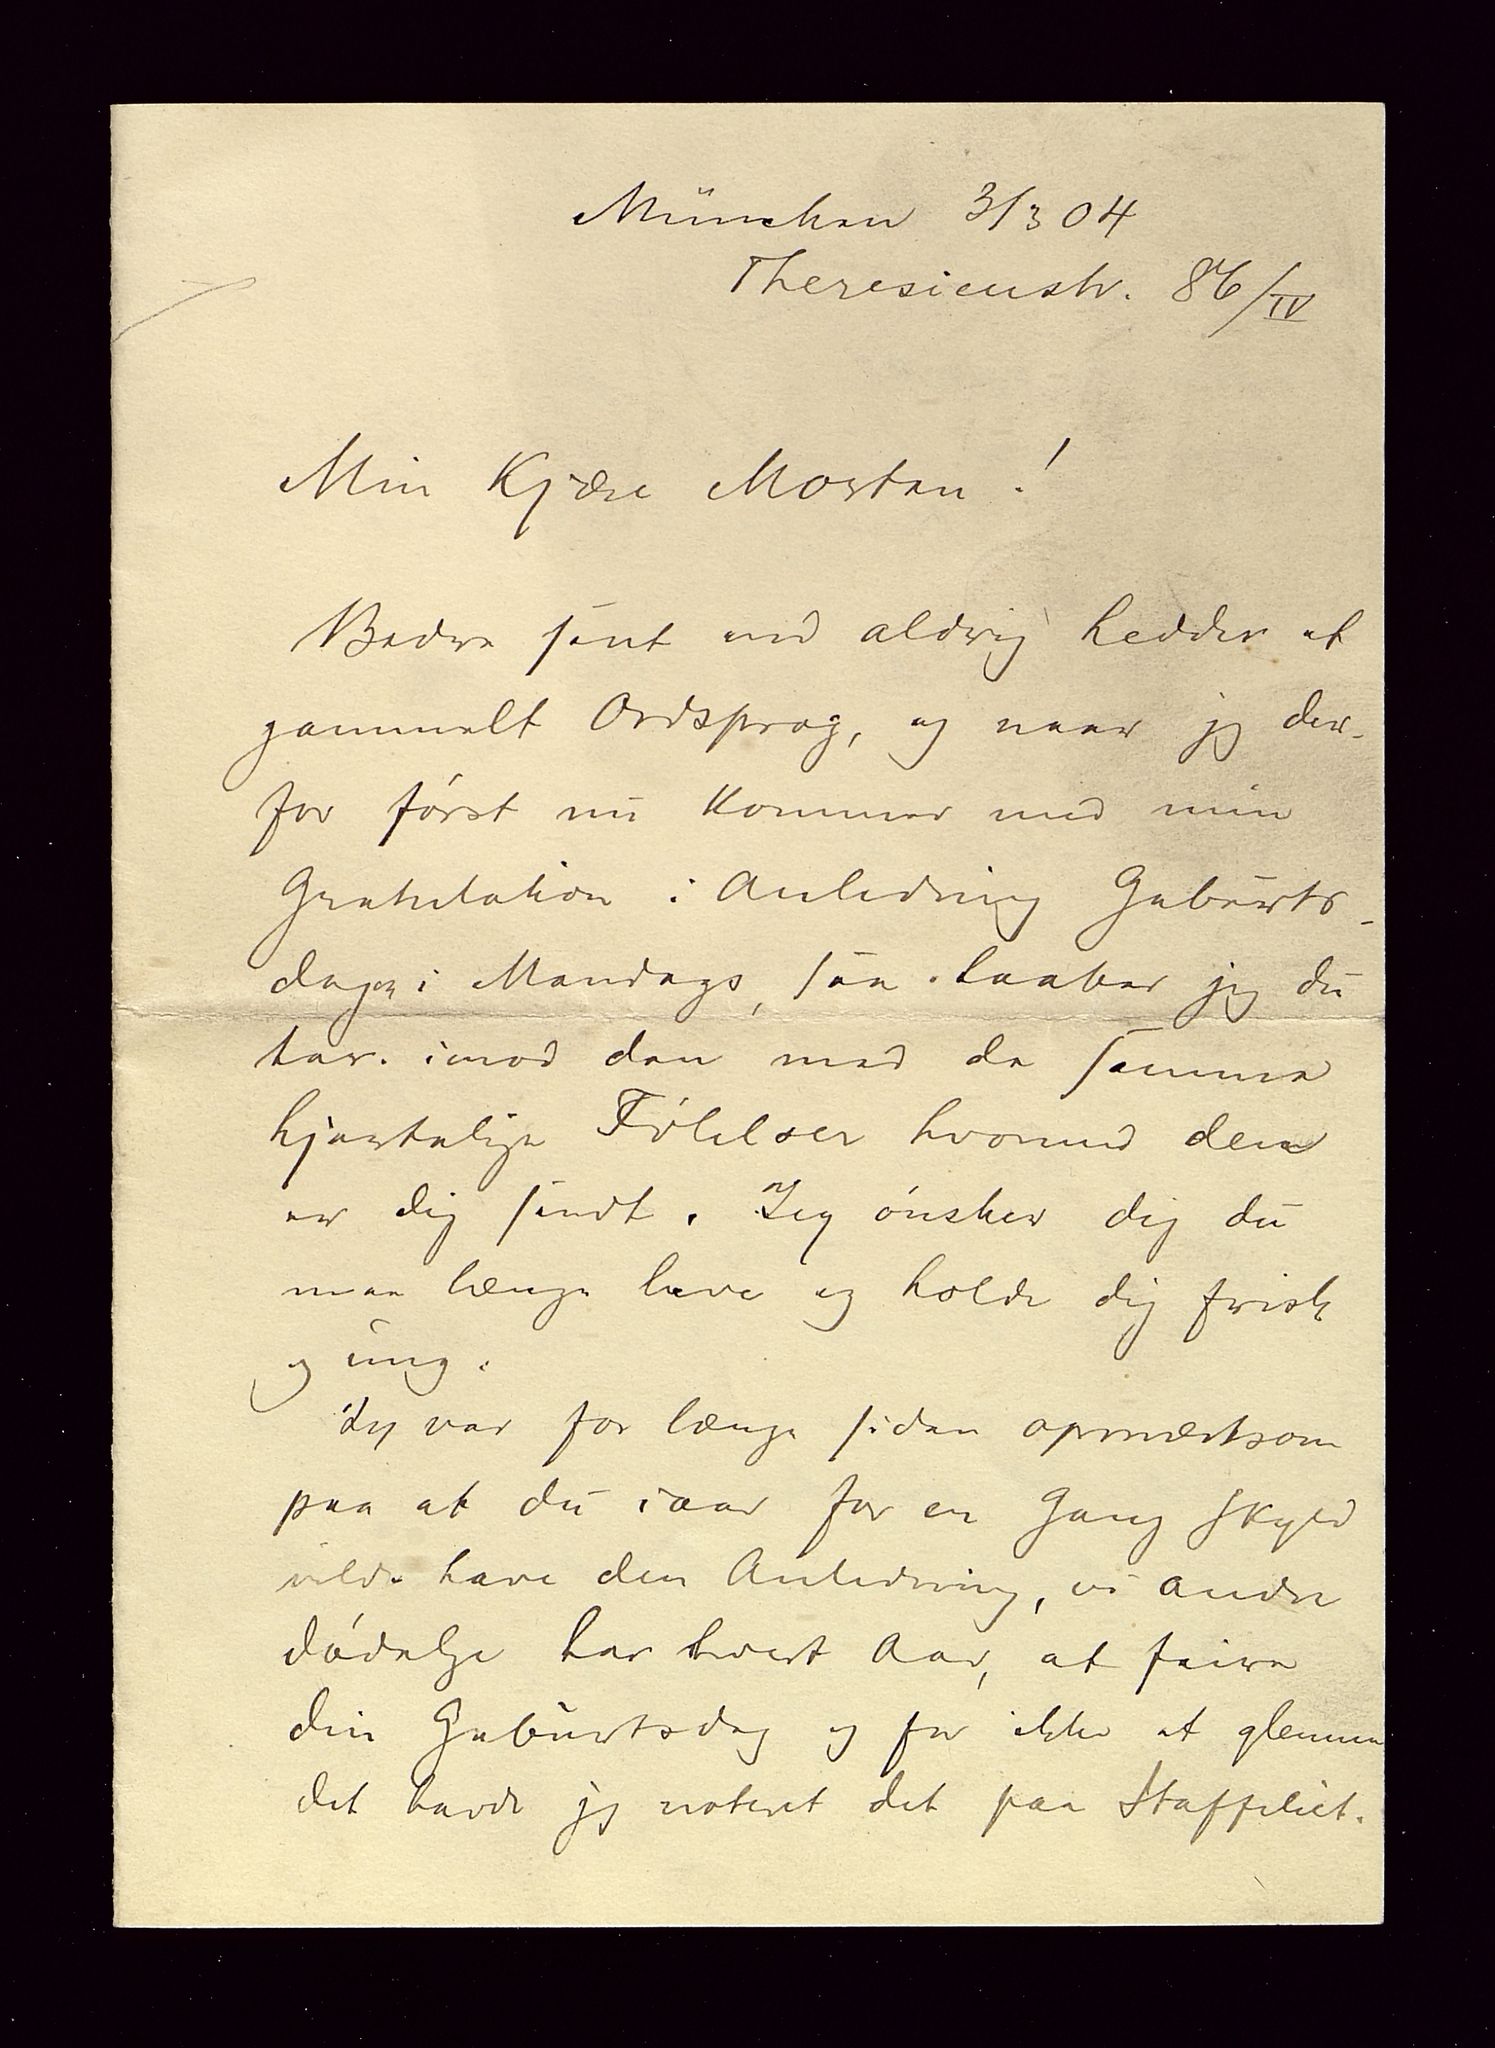 München 3/3 04
Theresienstr. 86/IV
Min Kjære Morten!
Bedre sent end aldrig hedder et
gammelt Ordsprog, og naar jeg der-
for først nu kommer med min
Gratulation i Anledning Geburts-
dagen i Mandags, saa haaber jeg du
tar imod den med de samme
hjertelige Følelser hvormed den
er dig sendt. Jeg ønsker dig du
maa længe leve og holde dig frisk
og ung.
Jeg var for længe siden opmærksom
paa at du iaar for en Gang skyld
vilde have den Anledning, vi andre
dødelige har hvert Aar, at feire
din Geburtsdag og for ikke at glemme
det havde jeg noteret det paa Staffeliet.